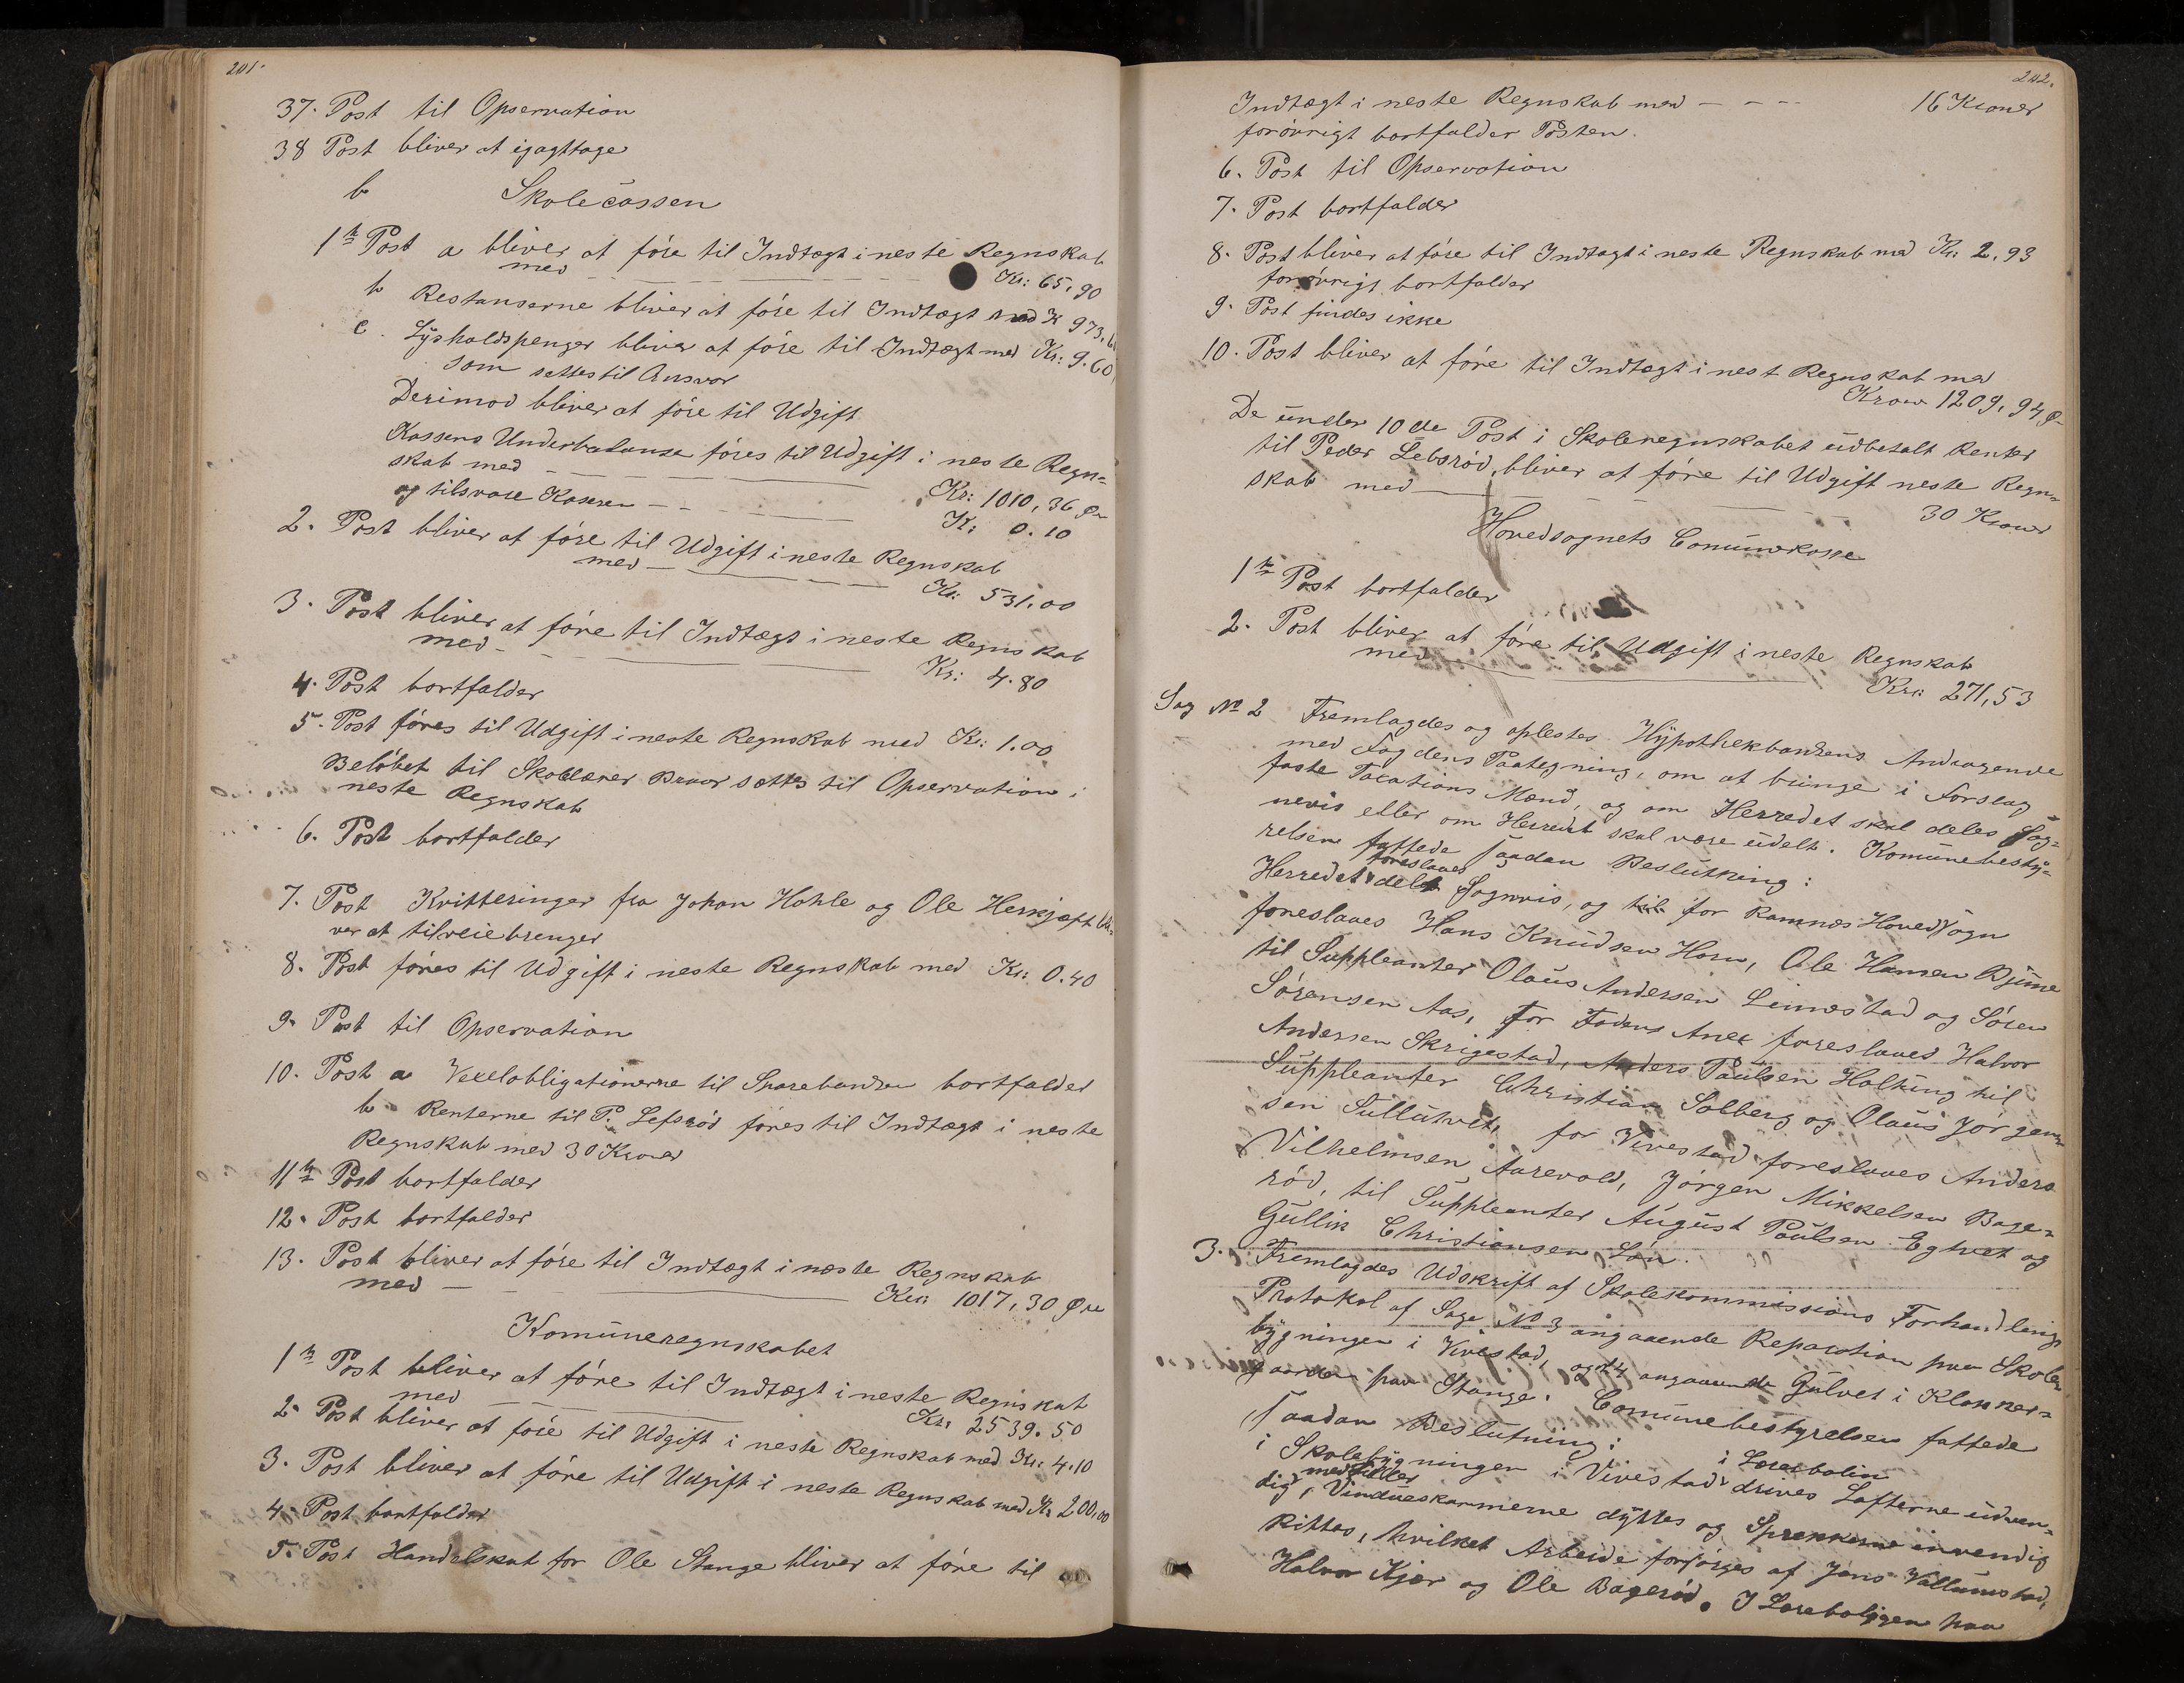 201.
37. Post til Opservation
38 Post bliver at igagttage
b Skolecassen
1ste Post a bliver at føre til Indtægt i neste Regnskab
med Kr: 65,90
b Restanserne bliver at føre til Indtægt med K 973,6
c. Lysholdspenger bliver at føre til Indtægt med Kr: 9.60
som settes til Ansvar
Derimod bliver at føre til Udgift
Kassens Underbalanse føres til Udgift i neste Regn=
skab med Kr: 1010,36 Ø
og tilsvare Kassren K: 0.10
2. Post bliver at føre til Udgift i neste Regnskab
med Kr: 531.00
3. Post bliver at føre til Indtægt i neste Regnskab
med Kr: 4.80
4. Post bortfalder
5. Post føres til Udgift i neste Regnskab med Kr: 1.00
Beløbet til Skolelærer sættes til Opservation i
neste Regnskab
6. Post bortfalder
7. Post Kvitteringer fra Johan Hohle og Ole Herkjæft bli=
ver at tilveiebrenger
8. Post føres til Udgift i neste Regnskab med Kr: 0.40
9. Post til Opservation
10. Post a Vexelobligationerne til Sparebanken bortfalder
b Renterne til P. Lefsrød føres til Indtægt i neste
Regnskab med 30 Kroner
11te Post bortfalder
12. Post bortfalder
13. Post bliver at føre til Indtægt i næste Regnskab
med Kr: 1017,30 Øre
Komuneregnskabet
1ste Post bliver at føre til Indtægt i neste Regnskab
med Kr: 2539.50
2. Post bliver at føre til Udgift i neste Regnskab med Kr: 4.10
3. Post bliver at føre til Udgift i neste Regnskab med Kr 200,00
4. Post bortfalder
5. Post Handelskat for Ole Stange bliver at føre til
202.
Indtægt i neste Regnskab med 16 Kroner
forøvrigt bortfalder Posten.
6. Post til Opservation
7. Post bortfalder
8. Post bliver at føre til Indtægt i neste Regnskab med Kr: 2,93
forøvrigt bortfalder
9. Post findes ikke
10. Post bliver at føre til Indtægt i nest Regnskab med
Kroner 1209,94 Ø
De under 10de Post i Skoleregnskabet udbetalt Renter
til Peder Lebsrød, bliver at føre til Udgift neste Regn=
skab med 30 Kroner
Hovedsognets Comunekasse
1ste Post bortfalder
2. Post bliver at føre til Udgift i neste Regnskab
med Kr: 271,53
Sag No 2 Fremlagdes og oplestes Hypothekbankens Andragende
med Fogdens Paategning, om at bringe i Forslag
faste Taxations Mænd, og om Herredet skal deles Sog=
nevis eller om Herredet skal være udelt. Komunebesty=
relsen fattede saadan Beslutning:
Herredet foreslaaes delt Sognvis, og for Ramnes Hovedsogn
foreslaaes Hans Knudsen Horn, Ole Hansen Bjune
til Suppleanter Olaus Andersen Linnestad og Søren
Sørensen Aas, For Fodens Anex foreslaaes Halvor
Andersen Skrigestad, Anders Paulsen Holtung til
Suppleanter Christian Solberg og Olaus Jørgen=
sen Sullutvet, for Vivestad foreslaaes Anders
Vilhelmsen Aarevold, Jørgen Mikkelsen Bage=
rød, til Suppleanter August Paulsen Eghvet og
Gullik Christiansen Løn.
3. Fremlagdes Udskrift af Skolekommissions Forhandlings
Protokol af Sage No 3 angaaende Reparation paa Skole=
bygningen i Vivestad, og No 4 angaaende Gulvet i Klokker=
gaarden paa Stange. Comunebestyrelsen fattede
saadan Beslutning:
i Skolebygningen i Vivestad i Lærerbolin drives Lofterne udven=
dig, med Filler Vindueskarmerne dyttes og Sprekkerne invendig
kittes, hvilket Arbeide forsørges af Jens Vallumstad,
Halvor Kjær og Ole Bagerød. I Lærebolygen paa